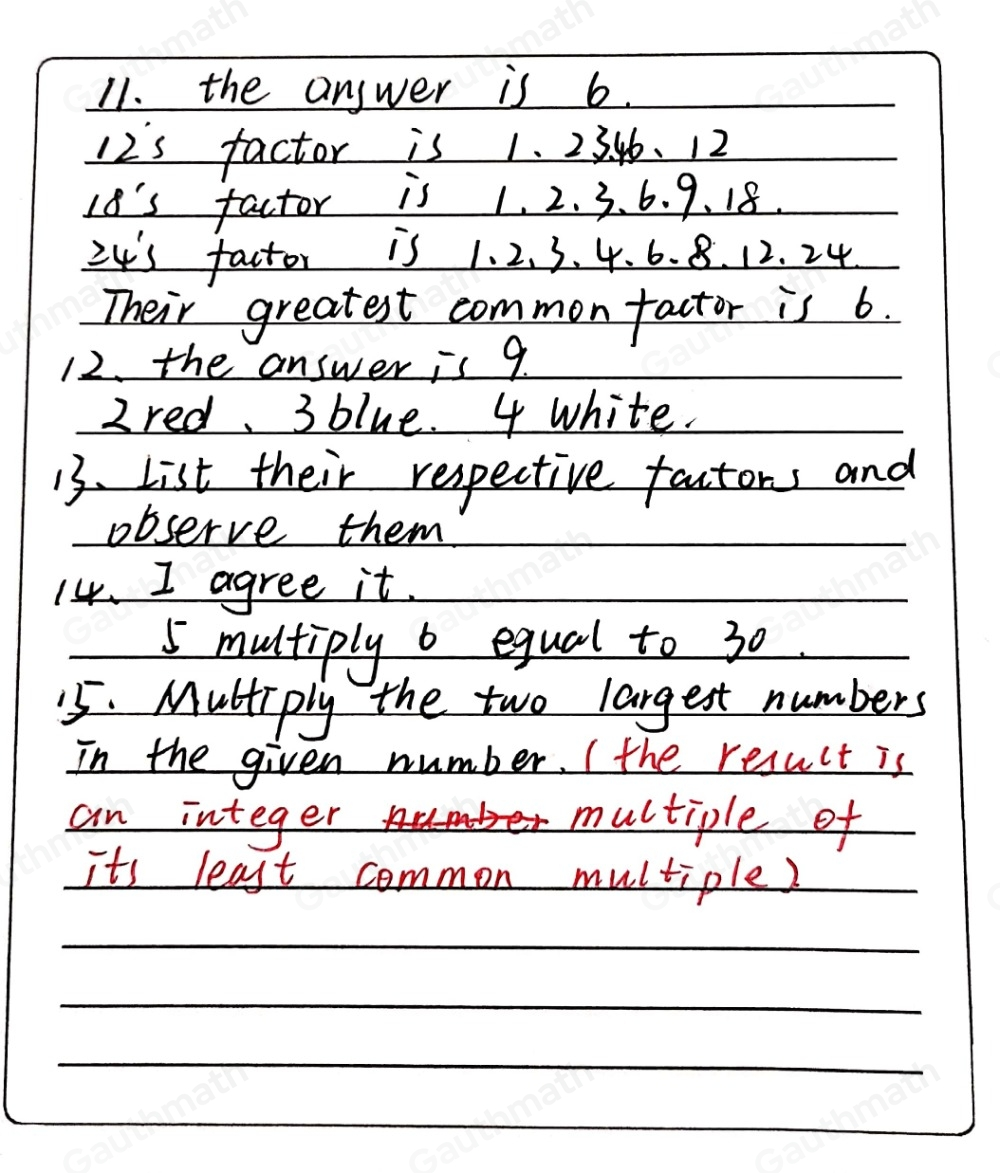 11. the answer is 6.
12's factor is 1、2 3.4 6、12
18's factor is 1.2.3.6.9.18.
24's factor is 1.2.3.4.6.8.12.24.
Their greatest common factor is 6.
12、the answer is 9.
2 red、3 blue. 4 white.
13、List their respective factors and
observe them.
14、I agree it.
5 multiply 6 equal to 30.
15. Multiply the two largest numbers
in the given number. (the result is
an integer number multiple of
its least common multiple)
Gauthmath